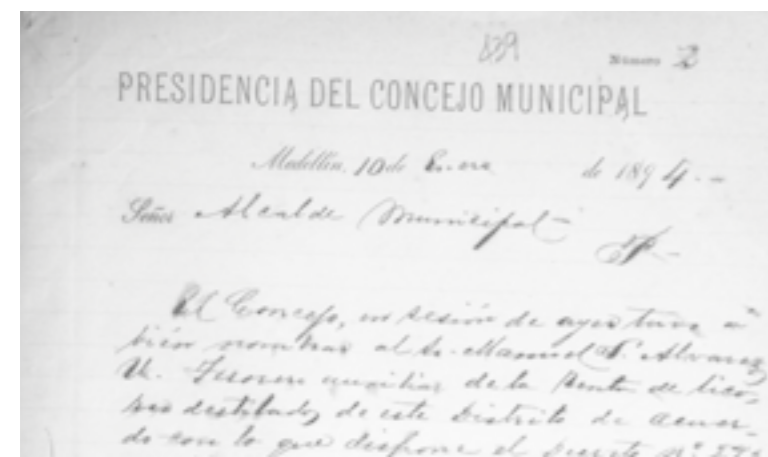 Número 2
PRESIDENCIA DEL CONCEJO MUNICIPAL
Medellín, 10 de Enero de 1894.-
Señor Alcalde Municipal-
P.-
El Concejo, en sesión de ayer tuvo á
bién nombrar al Sr. Manuel S. Alvarez
auxiliar de la Renta de lico-
res destilados de este Distrito de acuer-
do con lo que dispone el Decreto nº